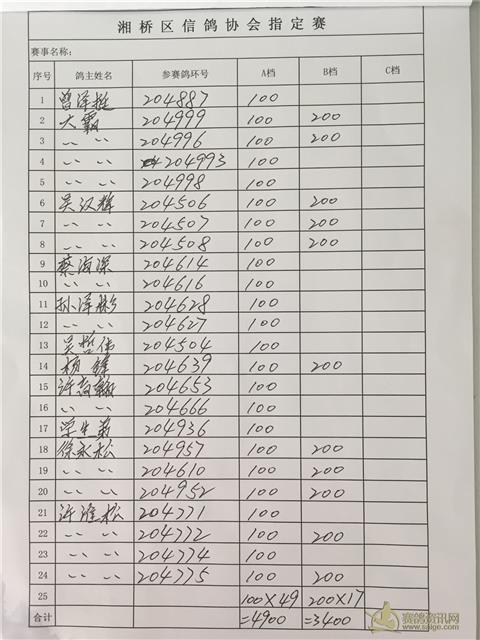 湘桥区信鸽协会指定赛
赛事名称:
序号 鸽主姓名 参赛鸽环号 A档 B档 C档
1 曾泽挺 204887 100
2 大霸 204999 100 200
3 〃 〃 204996 100 200
4 〃 〃 204993 100
5 〃 〃 204998 100
6 吴汉辉 204506 100 200
7 〃 〃 204507 100 200
8 〃 〃 204508 100 200
9 蔡海深 204614 100
10 〃 〃 204616 100
11 孙泽彬 204628 100
12 〃 〃 204627 100
13 吴哲伟 204504 100
14 杨锋 204639 100 200
15 许 204653 100
16 〃 〃 204666 100
17 学生弟 204936 100
18 徐永松 204957 100 200
19 〃 〃 204610 100 200
20 〃 〃 204952 100 200
21 许淮松 204771 100
22 〃 〃 204772 100 200
23 〃 〃 204774 100
24 〃 〃 204775 100 200
25 100×49 200×17
合计 =4900 =3400
赛鸽资讯网
www.saige.com